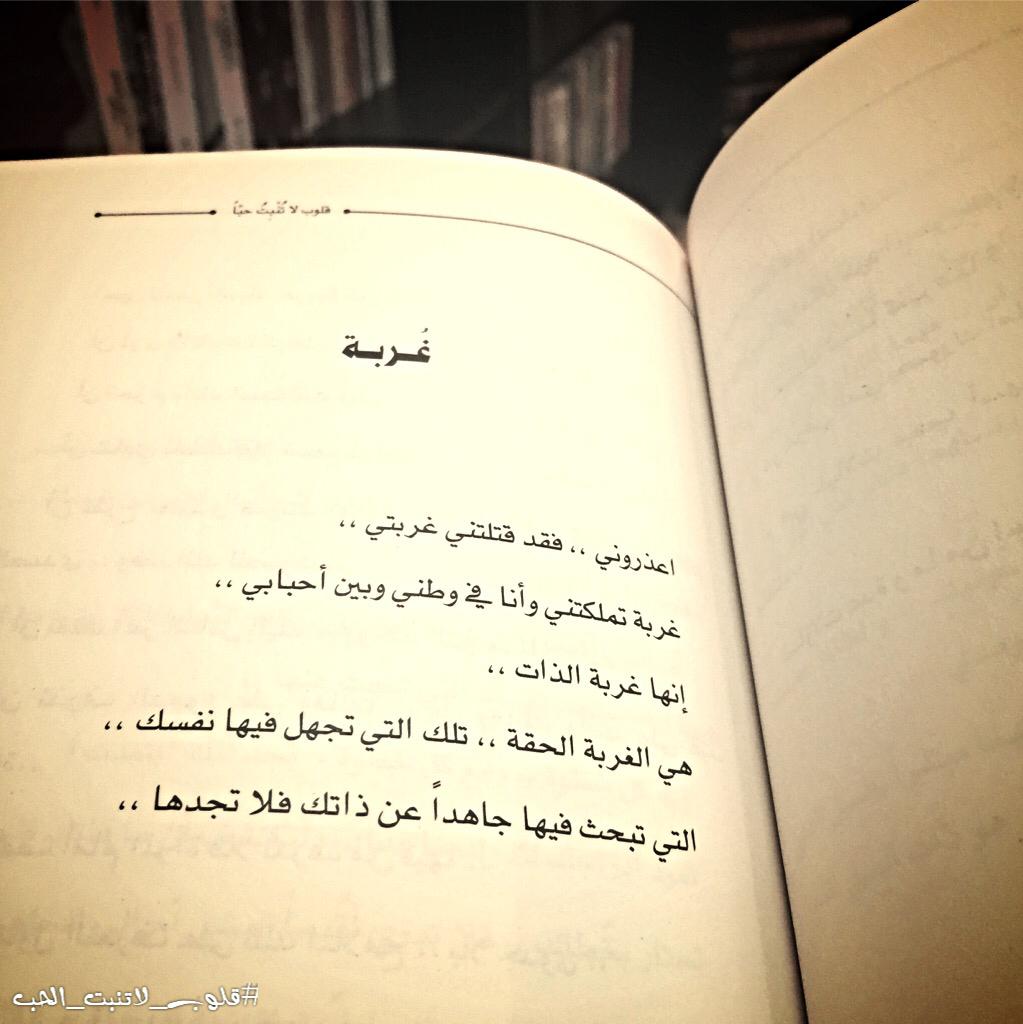 قلوب لا تُنْبِتُ حبّاً
غُربة
اعذروني ،، فقد قتلتني غربتي ،،
غربة تملكتني وأنا في وطني وبين أحبابي ،،
إنها غربة الذات ،،
هي الغربة الحقة ،، تلك التي تجهل فيها نفسك ،،
التي تبحث فيها جاهداً عن ذاتك فلا تجدها ،،
#قلوب_لاتنبت_الحب